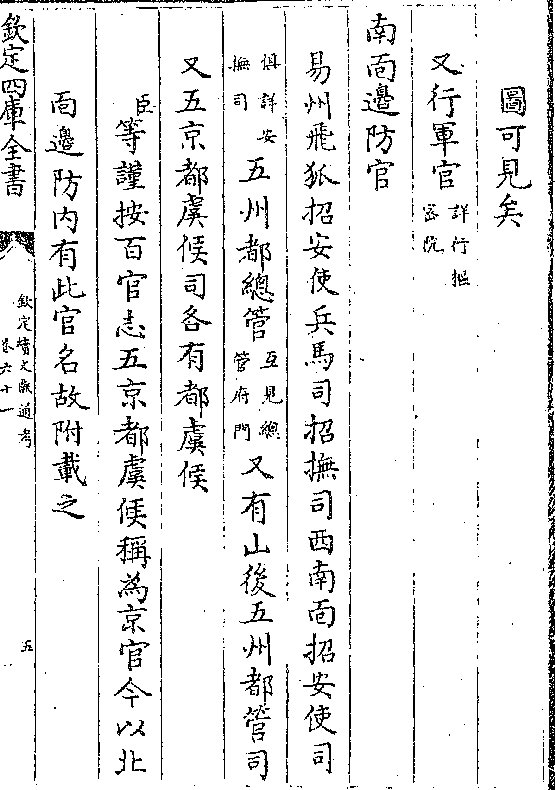 圖可見矣
又行軍官詳行樞
密院
南面邊防官
易州飛狐招安使兵馬司招撫司西南面招安使司
俱詳安
撫司五州都總管互見總
管府門又有山後五州都管司
又五京都虞候司各有都虞候
臣等謹按百官志五京都虞候稱為京官今以北
面邊防内有此官名故附載之
欽定四庫全書
欽定續文獻通考
卷六十一
五